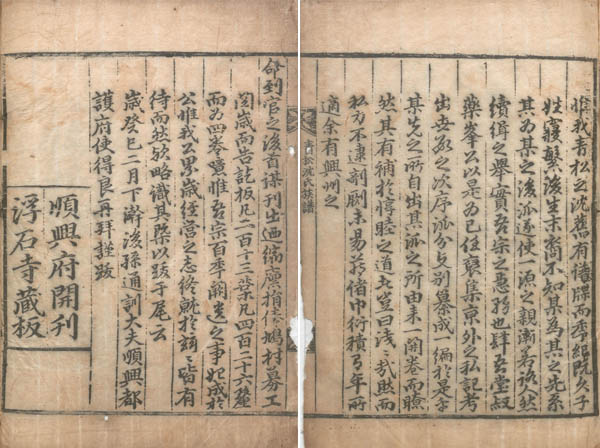 惟我青松之沈舊有譜牒而年紀既久子
姓寢繁後生末裔不知某爲某之先系
某爲某之後派遂使一源之親漸若路人然
續緝之擧實吾宗之急務也肆吾堂叔
藥峯公以是爲己任裒集京外之私記考
出世數之次序派分支別纂成一編於是乎
其先之所自出其派之所由來一開卷而瞭
然其有補於惇睦之道也豈曰淺淺哉然而
私力不逮剞劂未易蒭儲巾衍積有年所
適余有興州之
青松沈氏族譜
命到官之後首謀刊出廼竭廩捐俸鳩材募工
閱歲而告訖板凡二百十三葉凡四百二十六釐
而爲四卷噫惟吾宗百年闕典之事始成於
公惟我公累歲經營之志終就於皆有
待而然歟略識其槩以跋于尾云
歲癸巳二月下澣後孫通訓大夫順興都
護府使得良再拜謹跋
順興府開刊
浮石寺藏板